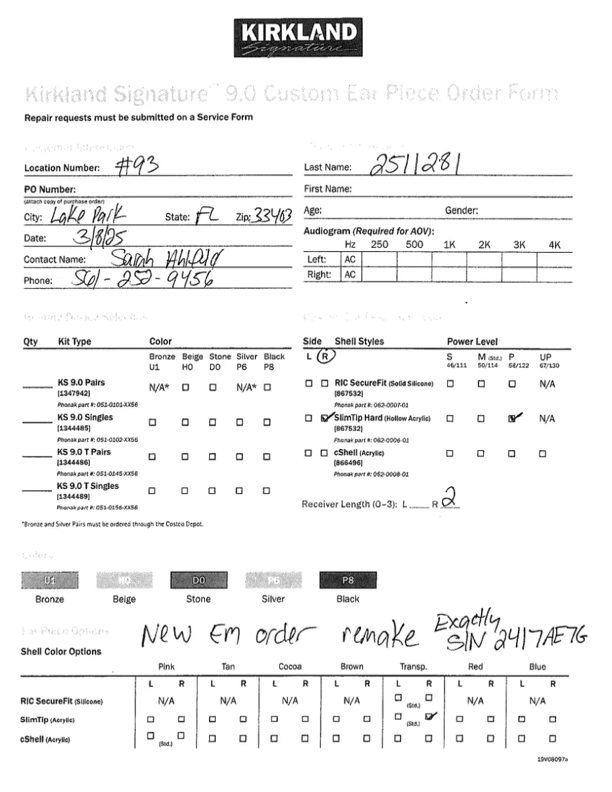 KIRKLAND
Signature
Kirkland Signature™ 9.0 Custom Ear Piece Order Form
Repair requests must be submitted on a Service Form
Location Number: #93
PO Number:
(attach copy of purchase order)
City: Lake Park State: FL Zip: 33403
Date: 3/8/25
Contact Name: Sarah
Phone: 561-252-9456
Last Name: 2511281
First Name:
Age: Gender:
Audiogram (Required for AOV):
Hz 250 500 1K 2K 3K 4K
Left: AC
Right: AC
Qty Kit Type Color
Bronze Beige Stone Silver Black
U1 H0 D0 P6 P8
KS 9.0 Pairs N/A* N/A*
[1347942]
Phonak part #: 051-0101-XX56
KS 9.0 Singles
[1344485]
Phonak part #: 051-0102-XX56
KS 9.0 T Pairs
[1344486]
Phonak part #: 051-0145-XX56
KS 9.0 T Singles
[1344489]
Phonak part #: 051-0156-XX56
*Bronze and Silver Pairs must be ordered through the Costco Depot.
Side Shell Styles Power Level
L R S M (Std.) P UP
46/111 50/114 58/122 67/130
RIC SecureFit (Solid Silicone) N/A
[867532]
Phonak part #: 062-0007-01
SlimTip Hard (Hollow Acrylic) N/A
[867532]
Phonak part #: 062-0006-01
cShell (Acrylic)
[866496]
Phonak part #: 062-0008-01
Receiver Length (0–3): L R 2
Colors
U1 H0 D0 P6 P8
Bronze Beige Stone Silver Black
Ear Piece Options
New Em order remake Exactly
S/N 2417AE7G
Shell Color Options
Pink Tan Cocoa Brown Transp. Red Blue
L R L R L R L R L R L R L R
RIC SecureFit (Silicone) N/A N/A N/A N/A (Std.) N/A N/A
SlimTip (Acrylic) (Std.)
cShell (Acrylic) (Std.)